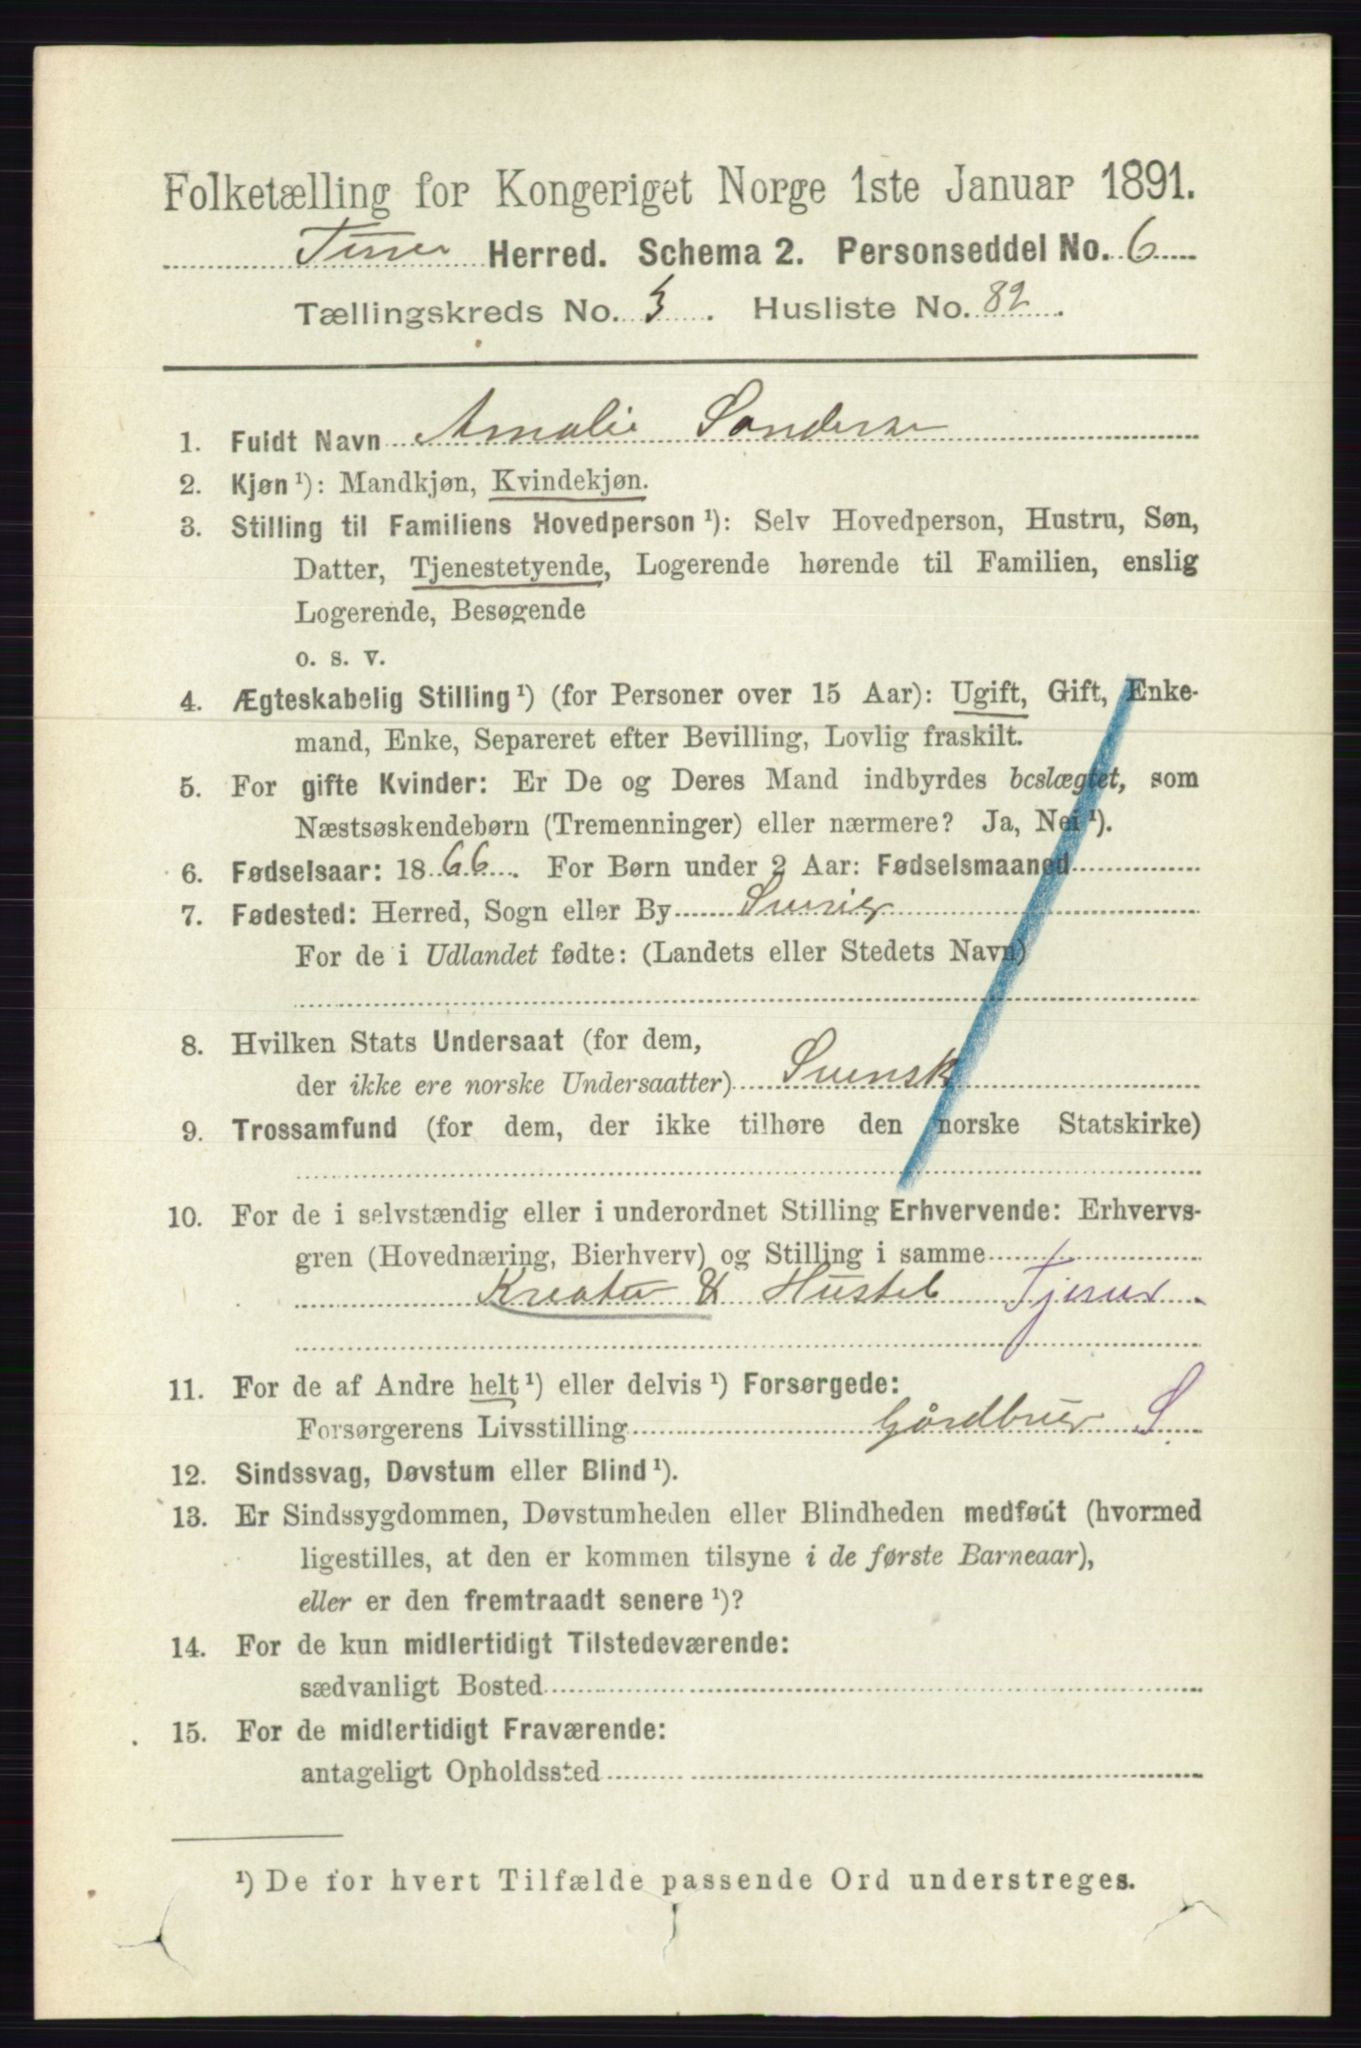 Folketælling for Kongeriget Norge 1ste Januar 1891.
Herred. Schema 2. Personseddel No. 6
Tællingskreds No. 3. Husliste No. 82.
1. Fuldt Navn Amalie
2. Kjøn ¹): Mandkjøn, Kvindekjøn.
3. Stilling til Familiens Hovedperson ¹): Selv Hovedperson, Hustru, Søn,
Datter, Tjenestetyende, Logerende hørende til Familien, enslig
Logerende, Besøgende
o. s. v.
4. Ægteskabelig Stilling ¹) (for Personer over 15 Aar): Ugift, Gift, Enke-
mand, Enke, Separeret efter Bevilling, Lovlig fraskilt.
5. For gifte Kvinder: Er De og Deres Mand indbyrdes beslægtet, som
Næstsøskendebørn (Tremenninger) eller nærmere? Ja, Nei ¹).
6. Fødselsaar: 1866. For Børn under 2 Aar: Fødselsmaaned
7. Fødested: Herred, Sogn eller By
For de i Udlandet fødte: (Landets eller Stedets Navn)
8. Hvilken Stats Undersaat (for dem,
der ikke ere norske Undersaatter) Svensk
9. Trossamfund (for dem, der ikke tilhøre den norske Statskirke)
10. For de i selvstændig eller i underordnet Stilling Erhvervende: Erhvervs-
gren (Hovednæring, Bierhverv) og Stilling i samme
Kreatur & Hustel
11. For de af Andre helt ¹) eller delvis ¹) Forsørgede:
Forsørgerens Livsstilling Gårdbruger S
12. Sindssvag, Døvstum eller Blind ¹).
13. Er Sindssygdommen, Døvstumheden eller Blindheden medfødt (hvormed
ligestilles, at den er kommen tilsyne i de første Barneaar),
eller er den fremtraadt senere ¹)?
14. For de kun midlertidigt Tilstedeværende:
sædvanligt Bosted
15. For de midlertidigt Fraværende:
antageligt Opholdssted
¹) De for hvert Tilfælde passende Ord understreges.